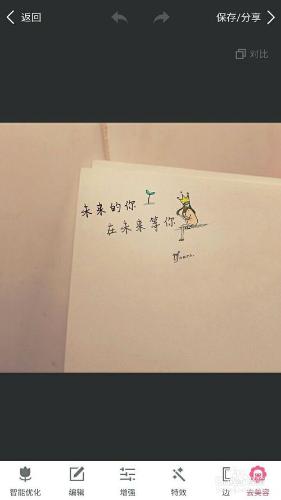 返回
保存/分享
对比
未来的你
在未来等你
智能优化
编辑
增强
特效
边
去美容